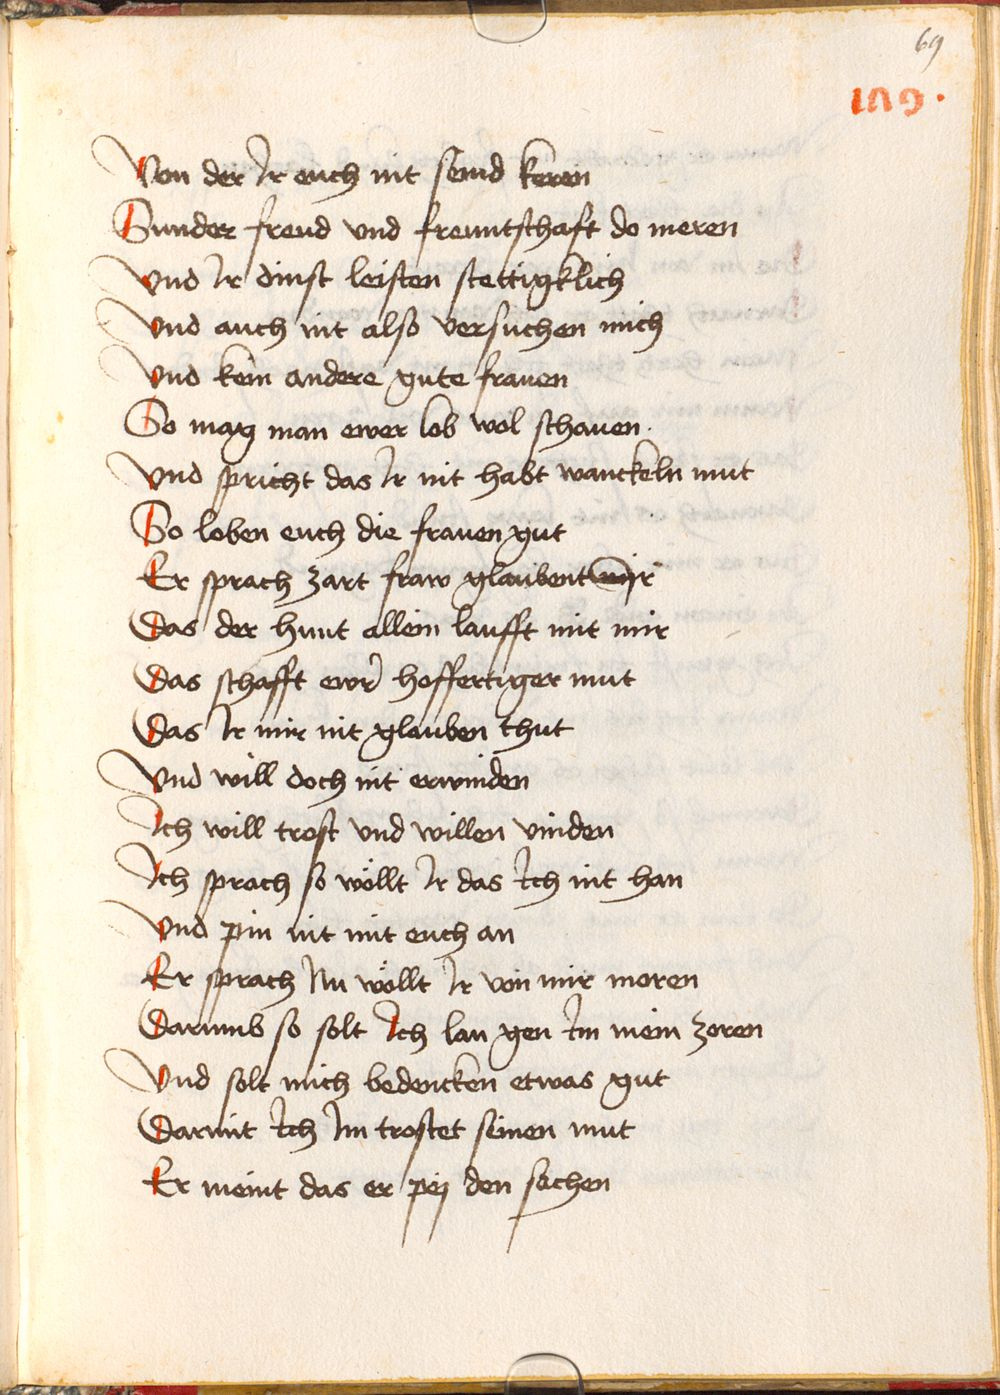 69
189.
Von der Ir euch nit sennd keren
Sunder freud vnd freuntschaft do meren
Vnd Ir dinst leisten stettigklich
Vnd auch nit also versuchen mich
Vnd kein andere gute frauen
So mag man ewer lob wol schauen.
Vnd spricht das Ir nit habt wanckeln mut
So loben euch die frauen gut
Er sprach zart fraw glaubent Ir
Das der hunt allein laufft mit mir
Das schafft ewr hoffertiger mut
Das Ir mir nit glauben thut
Vnd will doch nit erwinden
Ich will trost vnd willen vinden
Ich sprach so wöllt Ir das Ich nit han
Vnd pin nit mit euch an
Er sprach Nu wöllt Ir von mir moren
Darumb so solt Ich lan gen Im mein zoren
Vnd solt mich bedencken etwas gut
Darmit Ich Im trostet seinen mut
Er meint das er pej den sachen